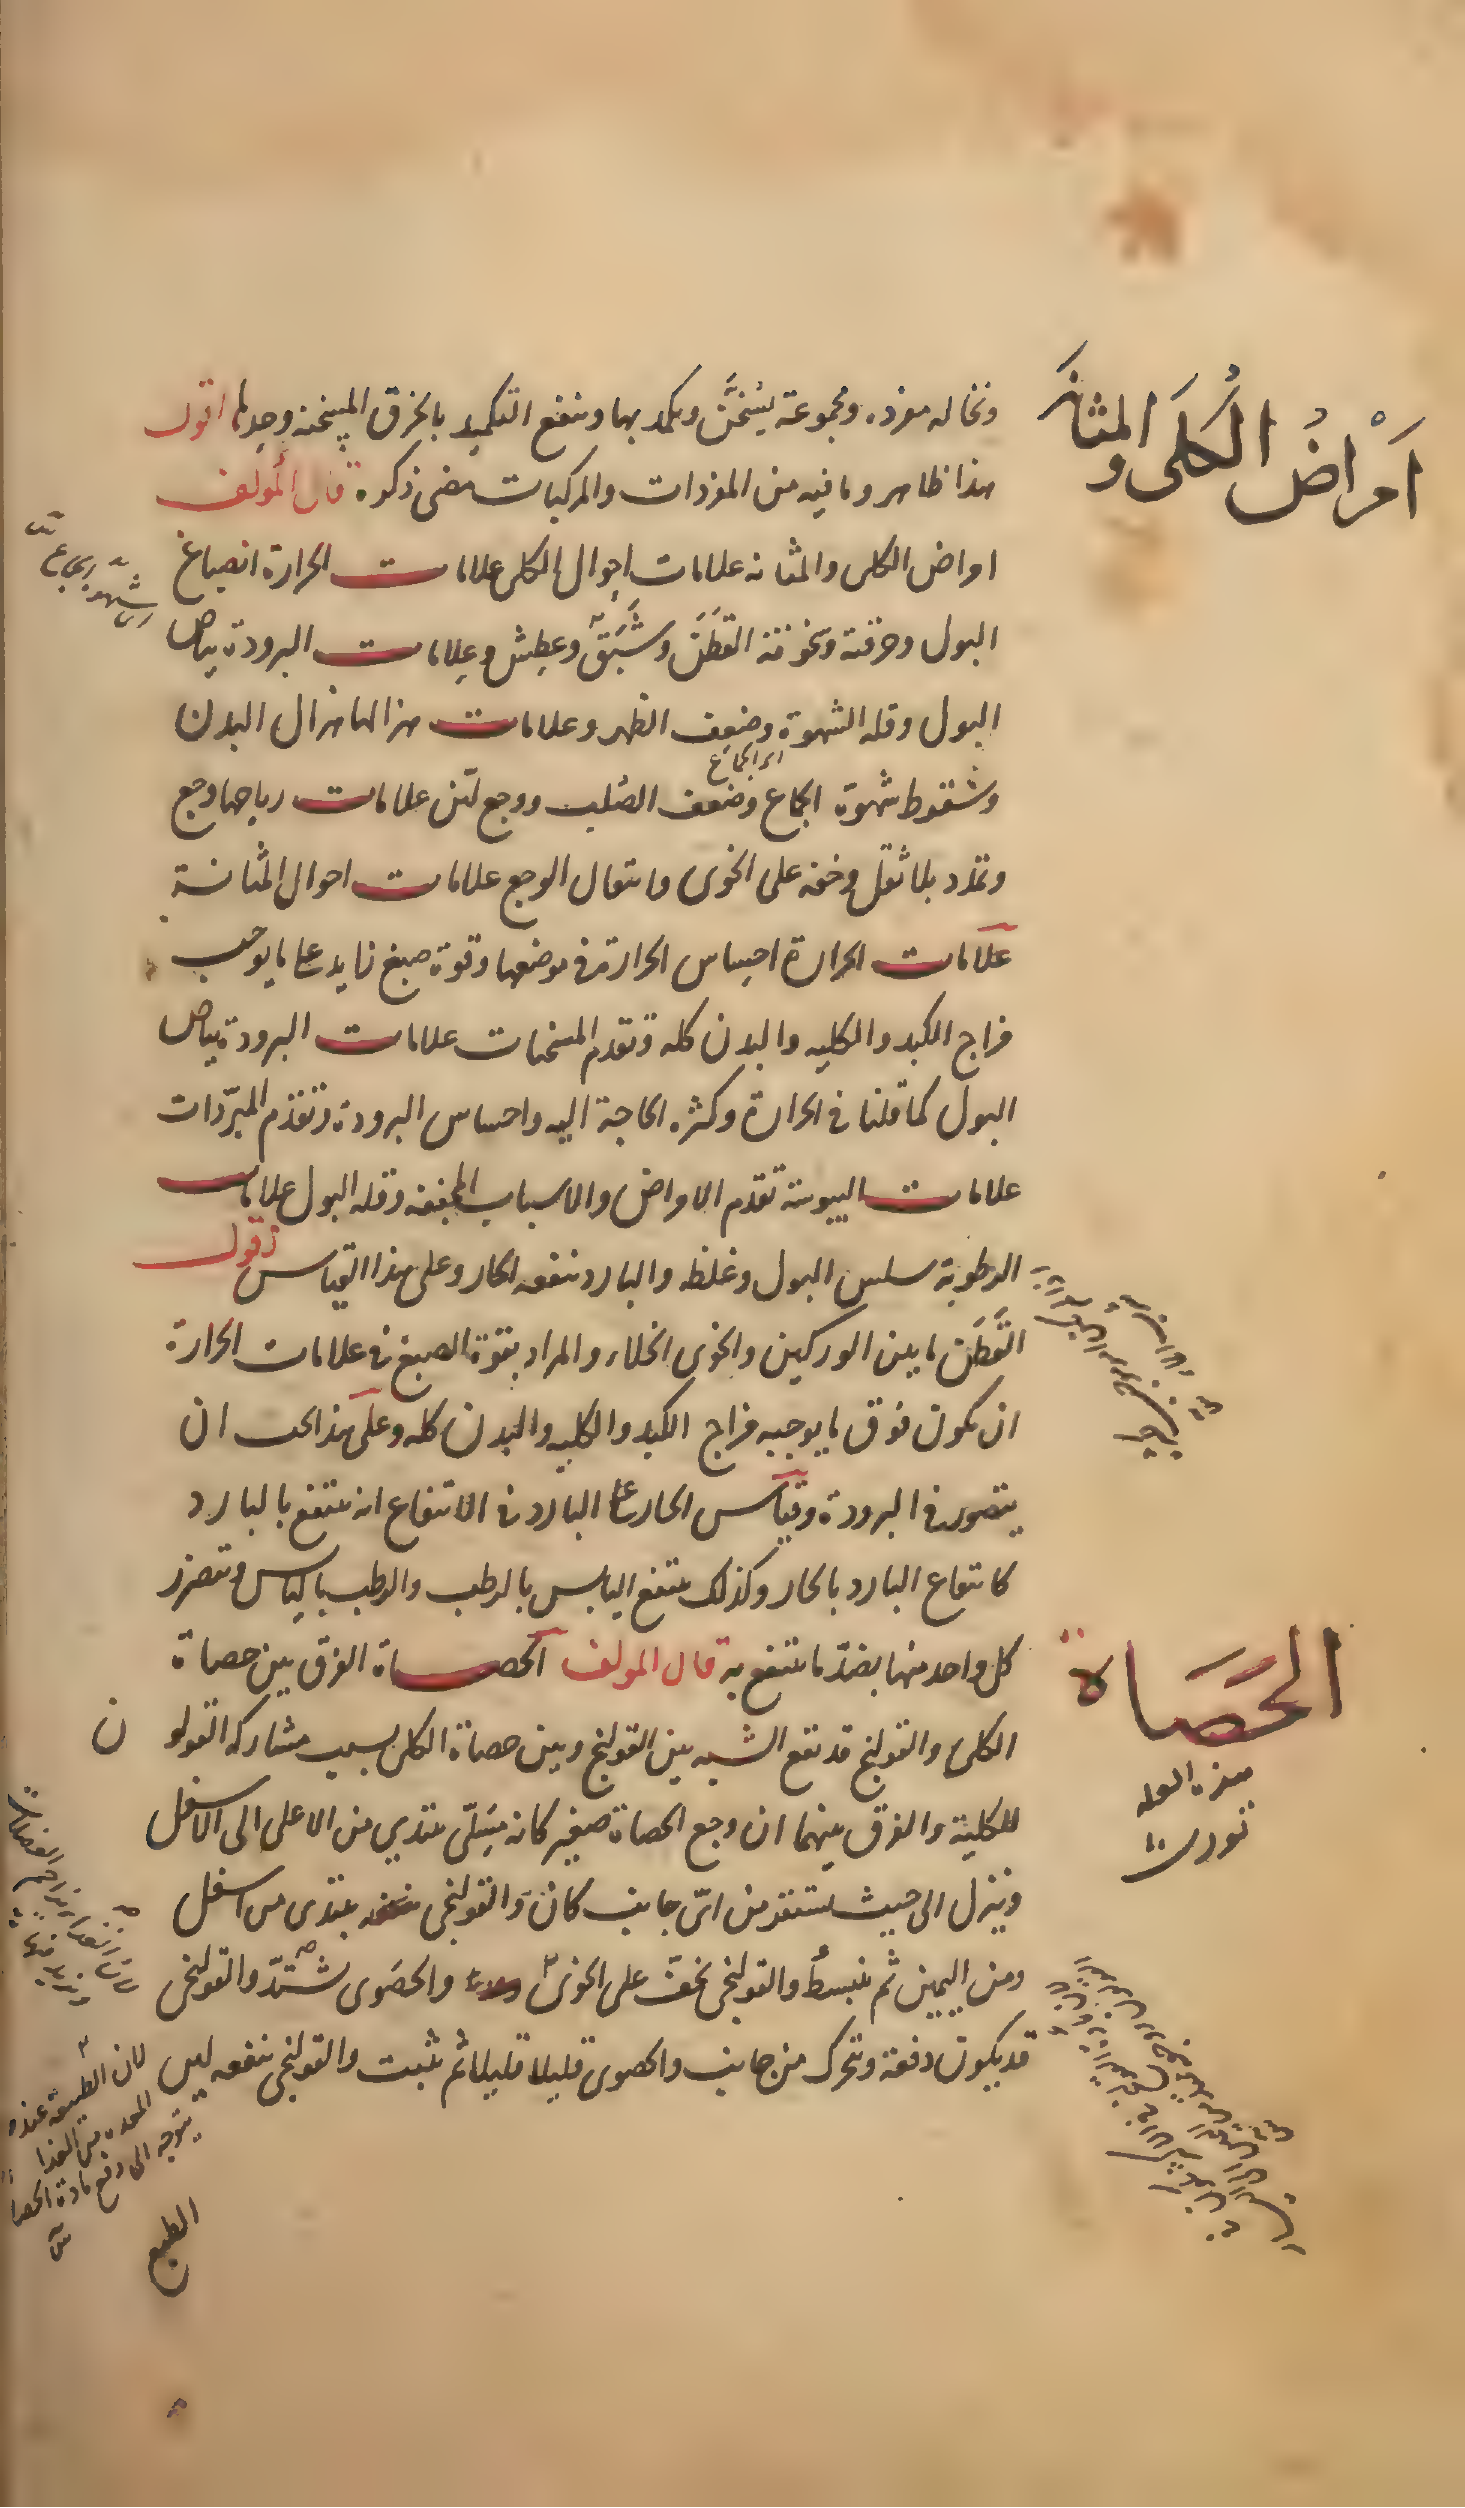 امراض الكلى والمثانة
ونخاله مفرده ومجموعة يسخن ويكمد بها وينفع التكميد بالخرق المسخنة وحدها اقول
هذا ظاهر وما فيه من المفردات والمركبات مضى ذكره قال المولف
امراض الكلى والمثانه علامات احوال الكلى علامات الحرارة انصباغ
البول وحرقته وسخونة القطن وشبق وعطش وعلامات البرودة بياض
اى شهوة الجماع
البول وقله الشهوة وضعف الظهر وعلامات هزالها هزال البدن
اى الجماع
وسقوط شهوة الجماع وضعف الصلب ووجع لين علامات رياحها وجع
وتمدد بلا ثقل وخفه على الخوى وانتقال الوجع علامات احوال المثانة
علامات الحرارة احساس الحرارة فى موضعها وقوة صبغ زايد على ما يوجب
مزاج الكبد والكليه والبدن كله وتقدم المسخنات علامات البرودة بياض
البول كما قلنا فى الحرارة وكثره الحاجة اليه واحساس البرودة وتقدم المبردات
علامات اليبوسة تقدم الامراض والاسباب المجففه وقله البول علامات
الرطوبة سلس البول وغلظه والبارد ينفعه الحار وعلى هذا القياس اقول
القطن ما بين الوركين والخوى الخلاء والمراد بقوة الصبغ فى علامات الحرارة
ان يكون فوق ما يوجبه مزاج الكبد والكليه والبدن كله وعلى هذا يجب ان
يتصور فى البرودة وقياس الحار على البارد فى الانتفاع انه ينتفع بالبارد
كانتفاع البارد بالحار وكذلك ينتفع اليابس بالرطب والرطب باليابس ويتضرر
كل واحد منها بضد ما ينتفع به قال المولف الحصاة الفرق بين حصاة
الحصاة
هذه العله
تورث
الكلى والقولنج قد تقع الشبه بين القولنج وبين حصاة الكلى بسبب مشاركه القولون
للكلية والفرق بينهما ان وجع الحصاة صغير كانه مسلى يبتدي من الاعلى الى الاسفل
وينزل الى حيث يستقر من اى جانب كان والقولنجى يبتدى من اسفل
ومن اليمين ثم ينبسط والقولنجى يخف على الخوى والحصوى يشتد والقولنجى
قد يكون دفعة ويتحرك من جانب والحصوى قليلا قليلا ثم يثبت والقولنجى ينفعه لين
لان الطبيعة عند
يتوجه الى دفع مادة الحصاة
الطبع